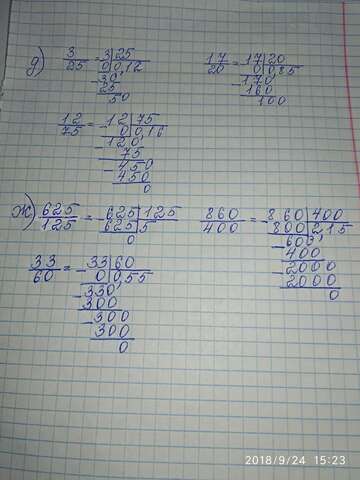 д) 3/25 = 3 | 25   17/20 = 17 | 20
0 | 0,12   0 | 0,85
- 30   - 170
25   160
50   100
12/75 = - 12 | 75
0 | 0,16
- 120
75
- 450
450
0
ж) 625/125 = - 625 | 125   860/400 = - 860 | 400
625 | 5   800 | 2,15
0   - 600
400
33/60 = - 33 | 60   - 2000
0 | 0,55   2000
- 330   0
300
- 300
300
0
2018/9/24 15:23